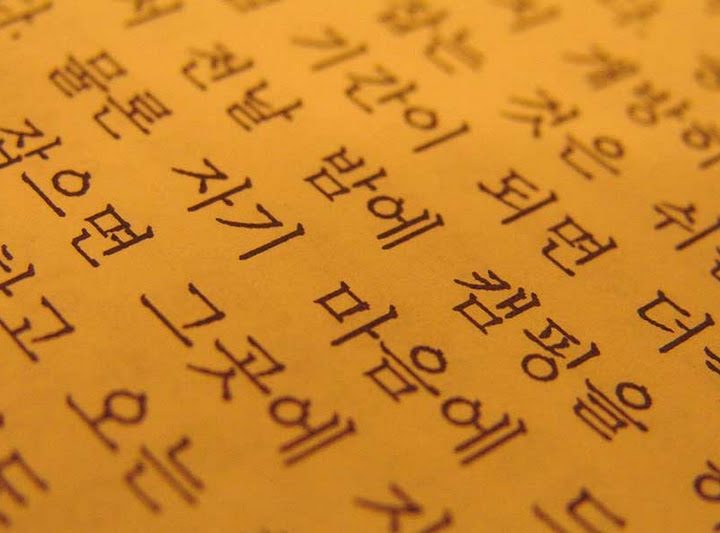 개방하
는 것은 쉬
기간이 되면 더
서 전날 밤에 캠핑을
물론 자기 마음에
으면 그곳에
고 오는